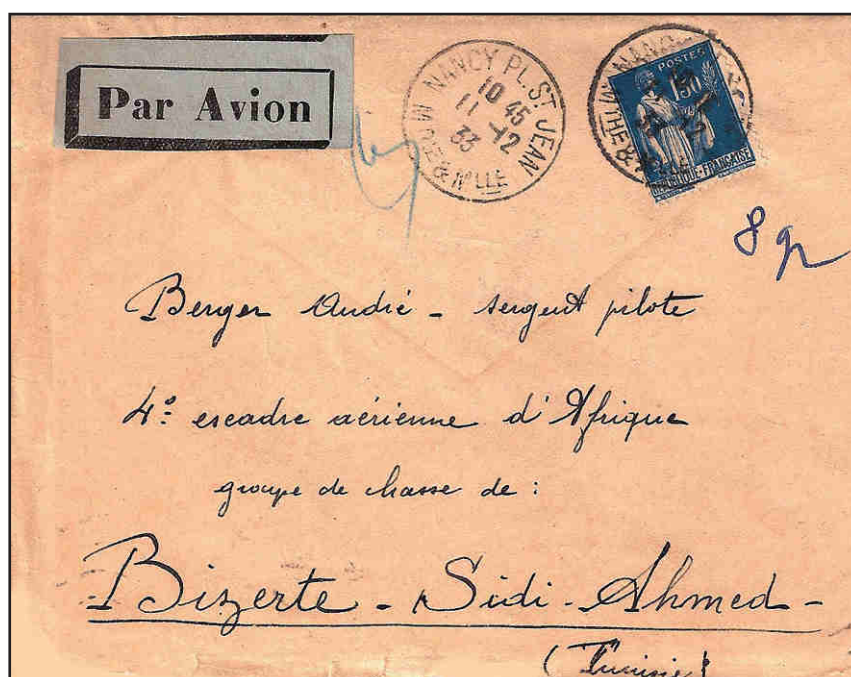 Par Avion
NANCY PL. ST JEAN
10 45
11 -12
33
MTHE & MLLE
NANCY
MTHE &
POSTES
1F50
REPUBLIQUE-FRANÇAISE
8 gr
Berger André - sergent pilote
4e escadre aérienne d'Afrique
groupe de chasse de :
Bizerte - Sidi-Ahmed -
(Tunisie)